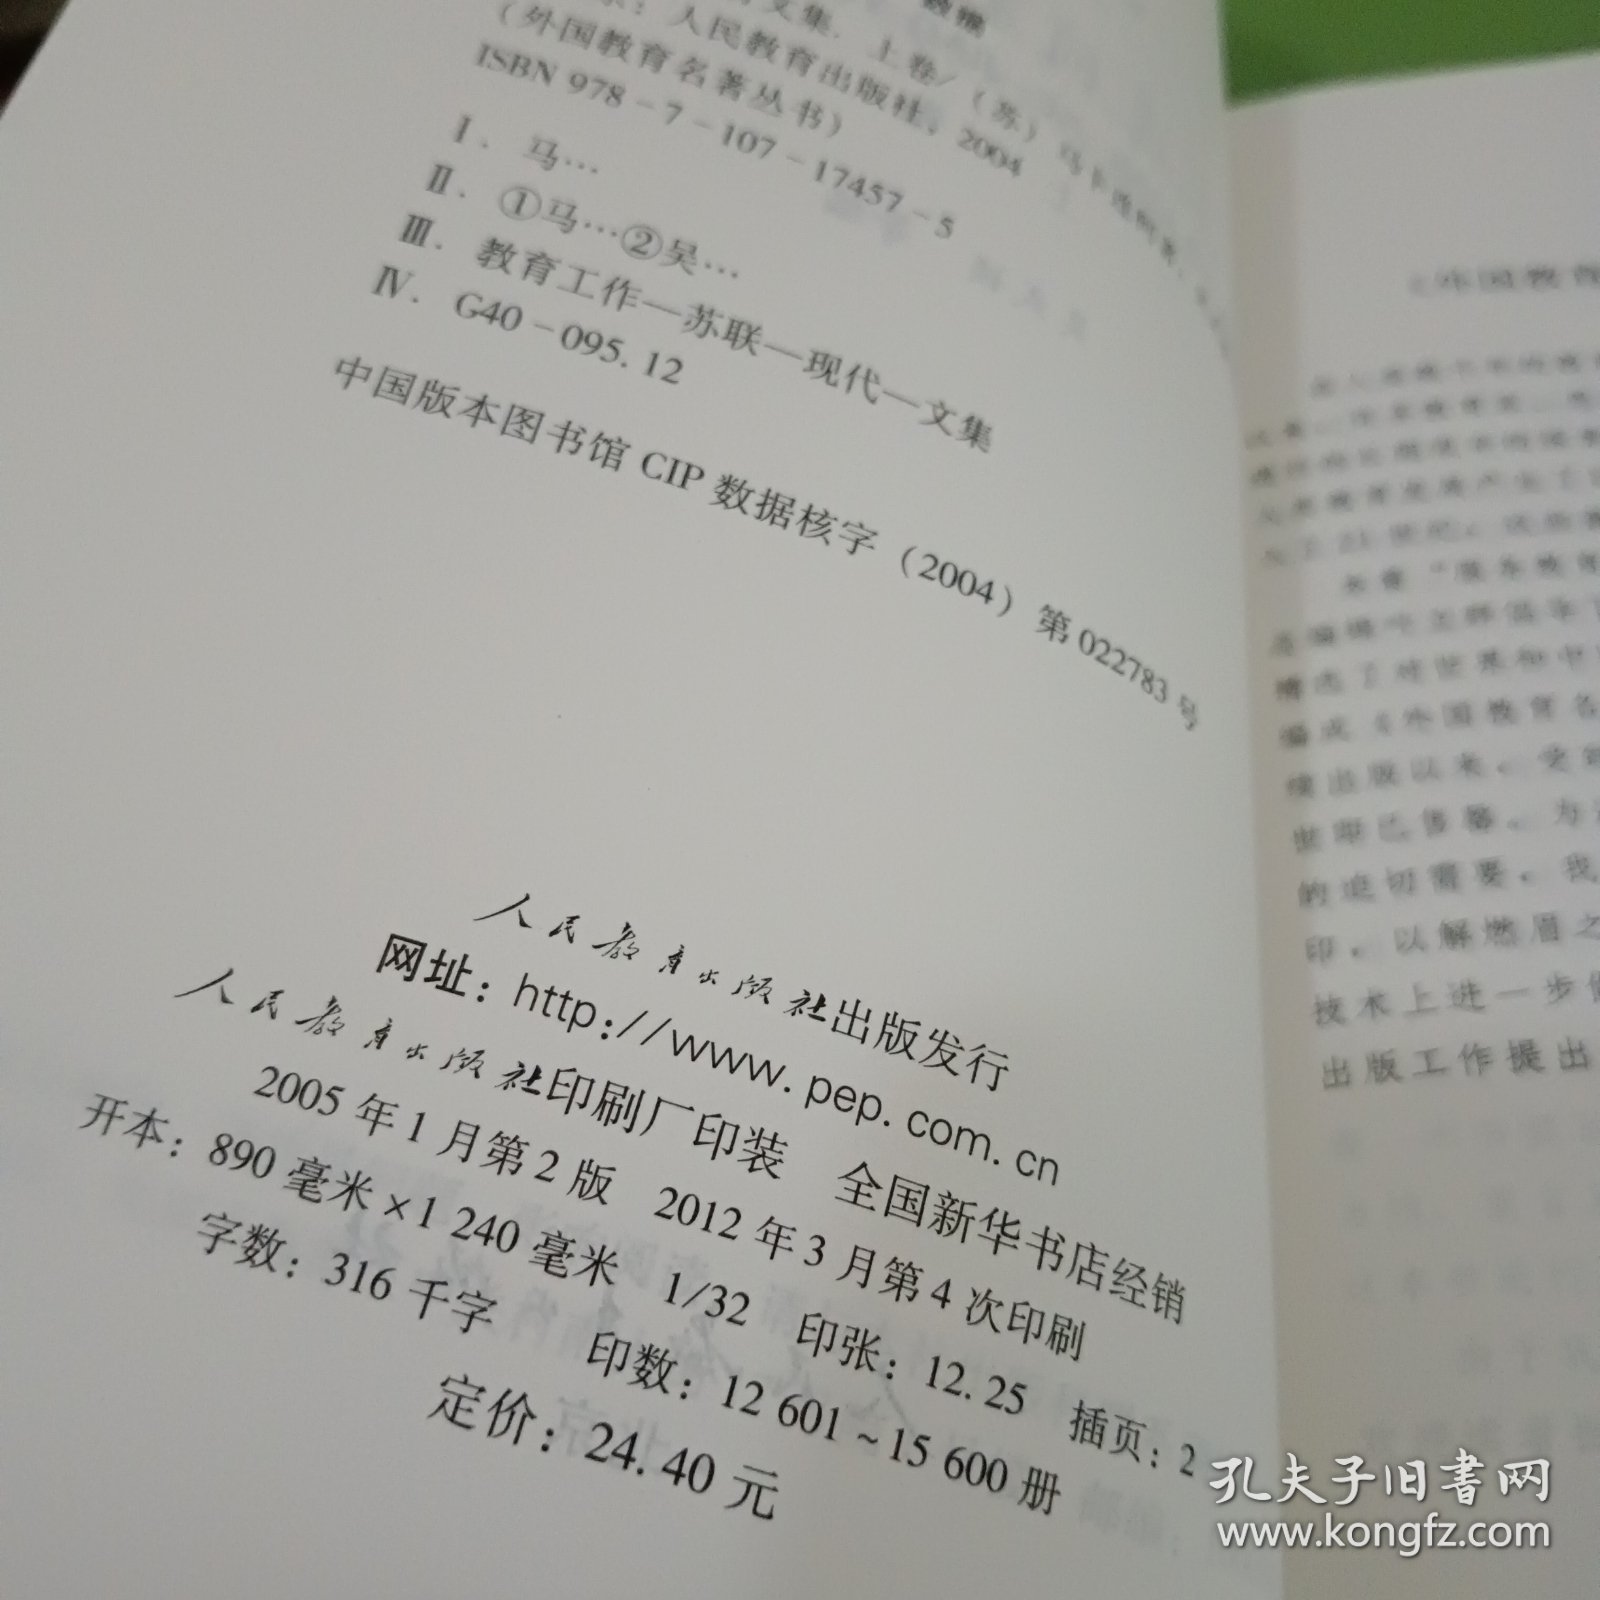 数据
文集. 上卷/（苏）马卡连柯著
：人民教育出版社，2004
（外国教育名著丛书）
ISBN 978-7-107-17457-5
Ⅰ. 马…
Ⅱ. ①马…②吴…
Ⅲ. 教育工作—苏联—现代—文集
Ⅳ. G40-095.12
中国版本图书馆 CIP 数据核字（2004）第 022783 号
人民教育出版社出版发行
网址：http://www.pep.com.cn
人民教育出版社印刷厂印装 全国新华书店经销
2005 年 1 月第 2 版 2012 年 3 月第 4 次印刷
开本：890 毫米×1 240 毫米 1/32 印张：12.25 插页：2
字数：316 千字 印数：12 601~15 600 册
定价：24.40 元
《外国教育
长者“
编成《外国教育名
续出版以来，受到
些即已售罄。为
的迫切需要，我
印，以解燃眉之
技术上进一步
出版工作提出
孔夫子旧书网
www.kongfz.com